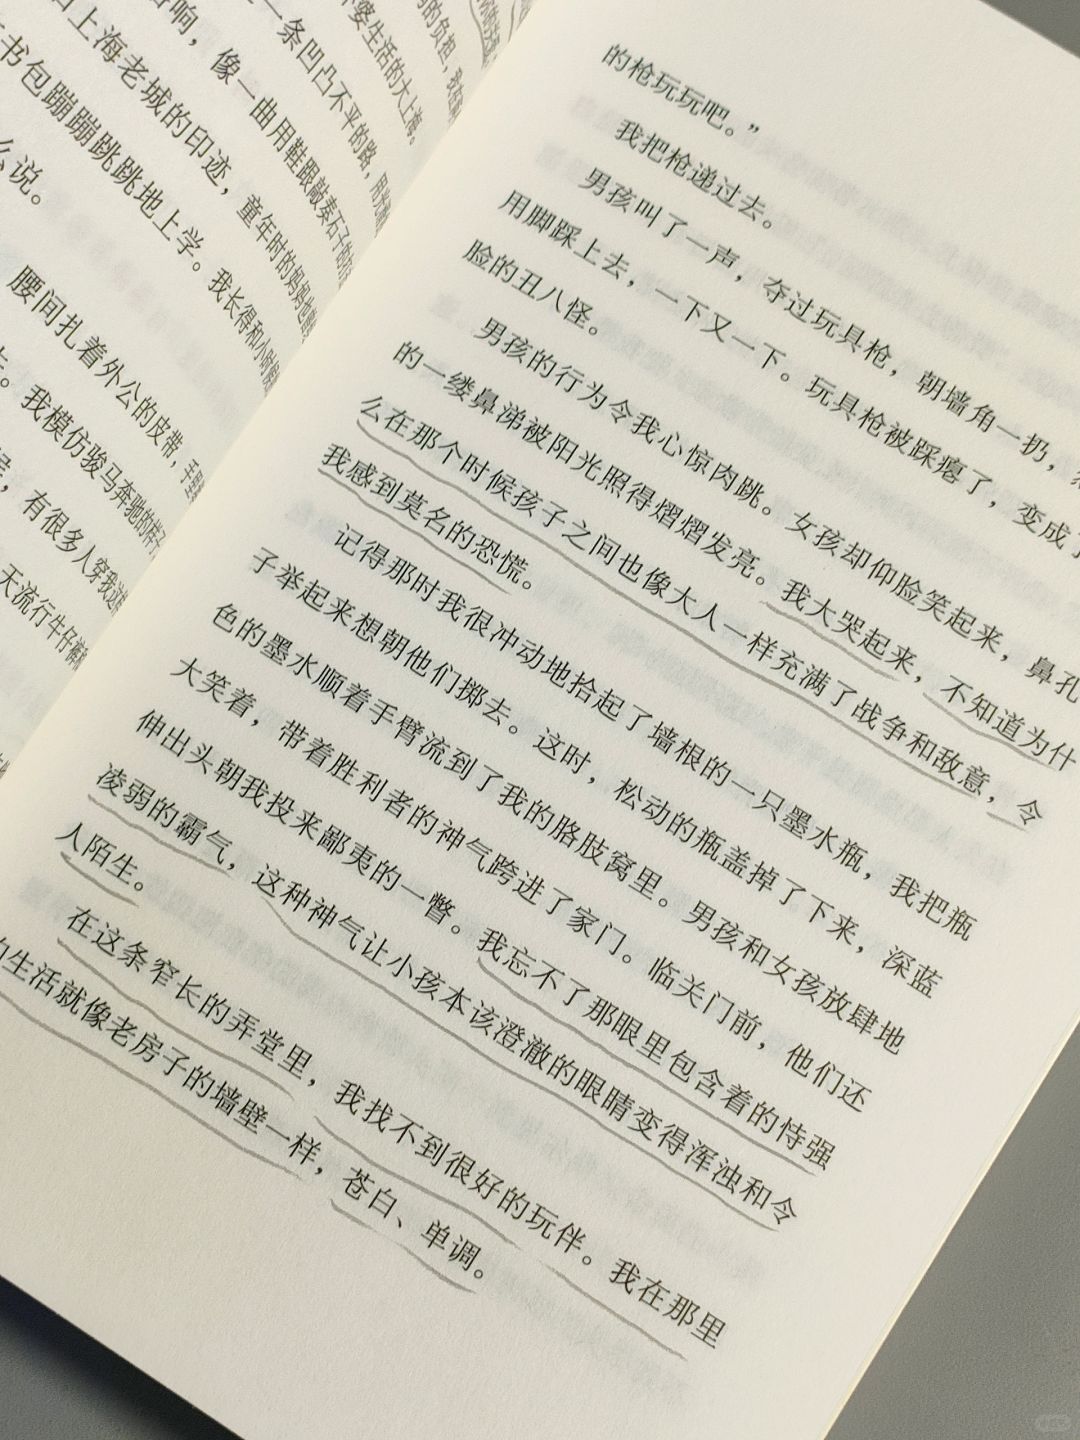 婆生活的大上海。
响，像一曲用鞋跟敲奏石子
一条凹凸不平的路，用
上海老城的印迹，童年时的妈妈
书包蹦蹦跳跳地上学。我长得和小时候
么说。
腰间扎着外公的皮带，手
我模仿骏马奔驰的样子
有很多人穿我这
天流行牛仔裤
的枪玩玩吧。”
我把枪递过去。
男孩叫了一声，夺过玩具枪，朝墙角一扔，
用脚踩上去，一下又一下。玩具枪被踩瘪了，变成了
脸的丑八怪。
男孩的行为令我心惊肉跳。女孩却仰脸笑起来，鼻孔
的一缕鼻涕被阳光照得熠熠发亮。我大哭起来，不知道为什
么在那个时候孩子之间也像大人一样充满了战争和敌意，令
我感到莫名的恐慌。
记得那时我很冲动地拾起了墙根的一只墨水瓶，我把瓶
子举起来想朝他们掷去。这时，松动的瓶盖掉了下来，深蓝
色的墨水顺着手臂流到了我的胳肢窝里。男孩和女孩放肆地
大笑着，带着胜利者的神气跨进了家门。临关门前，他们还
伸出头朝我投来鄙夷的一瞥。我忘不了那眼里包含着的恃强
凌弱的霸气，这种神气让小孩本该澄澈的眼睛变得浑浊和令
人陌生。
在这条窄长的弄堂里，我找不到很好的玩伴。我在那里
的生活就像老房子的墙壁一样，苍白、单调。